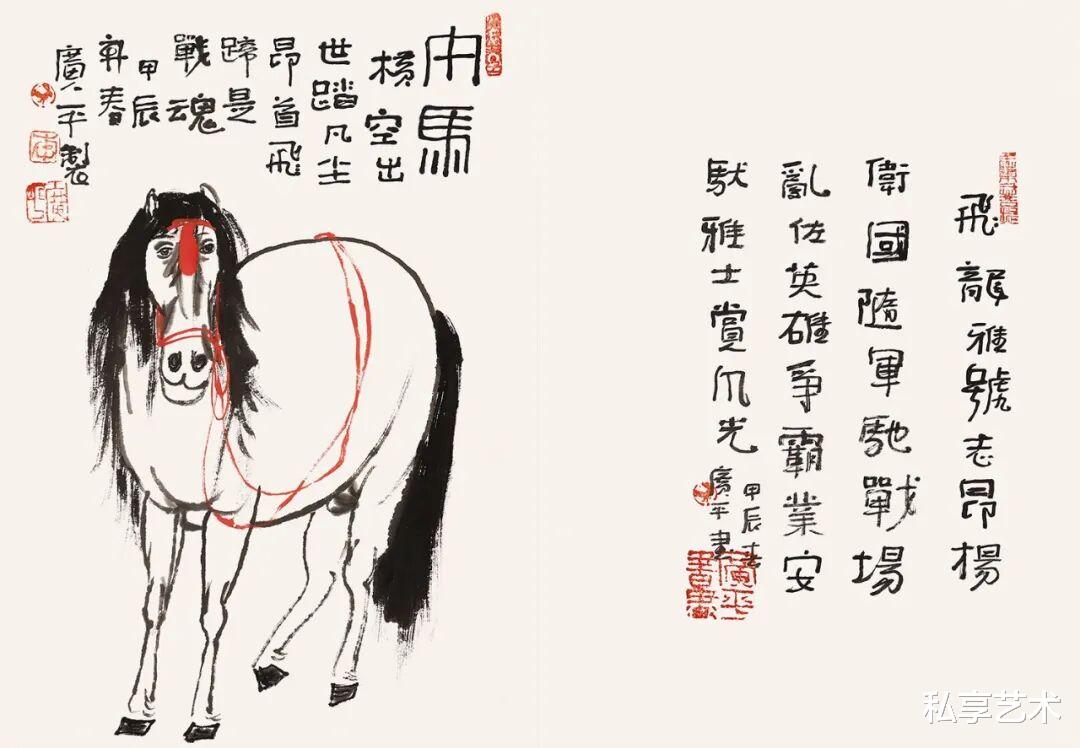 馬
橫空出
世踏凡尘
昂首飛
蹄是
戰魂
甲辰
春
廣平製
飛龍雅號志昂揚
衛國隨軍馳戰場
亂佐英雄爭霸業安
馱雅士賞風光
甲辰
廣平書
廣平書畫
私享艺术